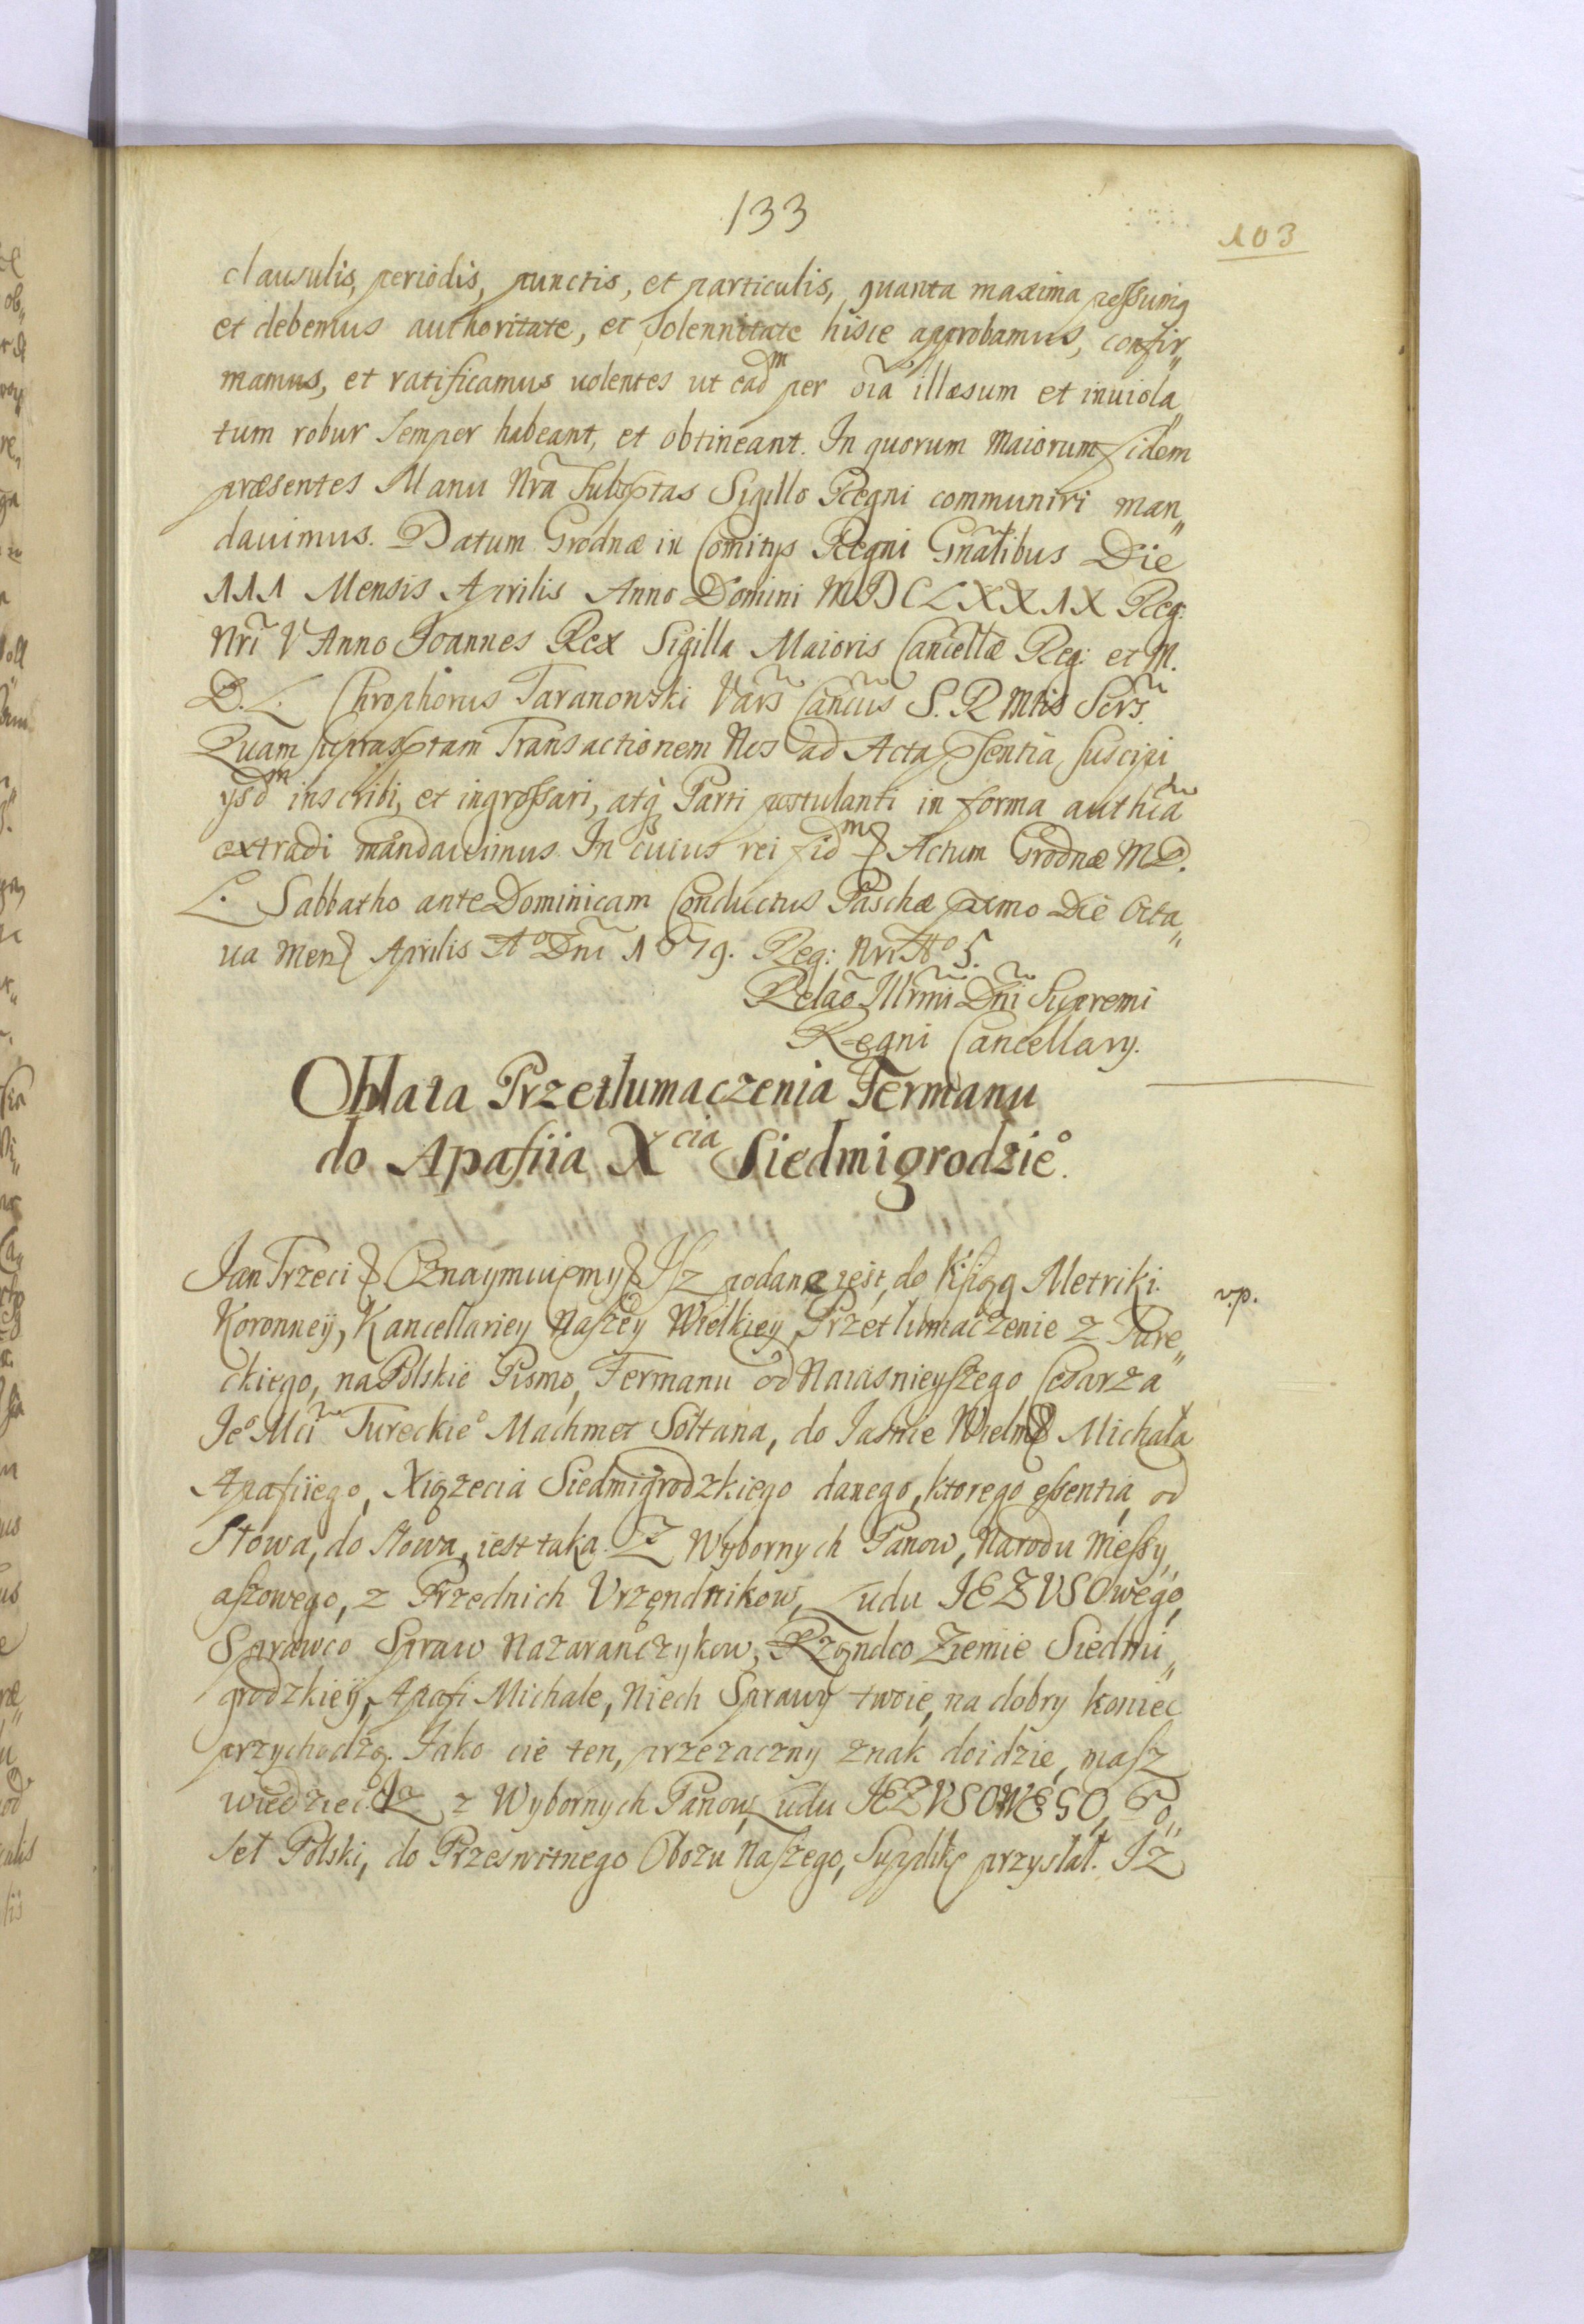 133
103
clausulis, periodis, punctis, et particulis, quanta maxima possumꝗ
et debemus authoritate, et Solennitate hisce approbamus, confir„
mamus, et ratificamus uolentes ut eadᵐ per oĩa illæsum et inuiola„
tum robur Semper habeant, et obtineant. In quorum Maiorum fidem
præsentes Manu Nrã Subsptas Sigillo Regni communiri man„
dauimus. Datum Grodnæ in Comitijs Regni Gnãlibus Die
111 Mensis Aprilis Anno Domini MDCLXXIX Reg:
Nrĩ V Anno Joannes Rex Sigilla Maioris Cancellæ Reg: et M.
D. L. Chrophorus Taranowski Vars Cancius S. R Mtis Scrs.
Quam suprasptam Transactionem Nos ad Acta psentia, suscipi
ijsdᵐ inscribi, et ingrossari, atq̃ Parti postulanti in forma authĩca
extradi mandauimus. In cuius rei fidᵐ Actum Grodnæ M D.
L. Sabbatho ante Dominicam Conductus Paschæ pximo Die Octa„
ua Mens Aprilis Aº Dnĩ 1679. Reg: Nri Aº 5.
Relaõ Illrmi Dñi Supremi
Regni Cancellarij.
Oblata Przetłumaczenia Fermanu
do Apafiia Xᶜⁱᵃ Siedmigrodzieº.
Jan Trzeci Oznaymuiemy Isz podane iest, do Ksiąg Metriki
v.p.
Koronneÿ, Kancellariey Naszey Wielkiey Przetłumaczenie z Ture„
ckiego, na Polskie Pismo, Fermanu od Naiasnieyszego Cesarza
Jeº Mci Tureckieº Machmet Sołtana, do Jasnie Wielm Michała
Apafiiego, Xiązecia Siedmigrodzkiego danego, ktorego essentia, od
Słowa, do słowa, iest taka. Z Wybornych Panow, Narodu Messy„
aszowego, z Przednich Vrzęndnikow, Ludu JEZVSOwego,
Sprawco Spraw Nazaranczykow, Rządco Ziemie Siedmi„
grodzkieÿ, Apafi Michale, Niech Sprawy twoie, na dobry koniec
przychodzą. Jako cie ten, przezaczny znak doidzie, masz
wiedziec. Iz z Wybornych Panow, Ludu JEZVSOWEGO, Po„
seł Polski, do Przeswitnego Obozu Naszego, Supplikę przysłał. Iz